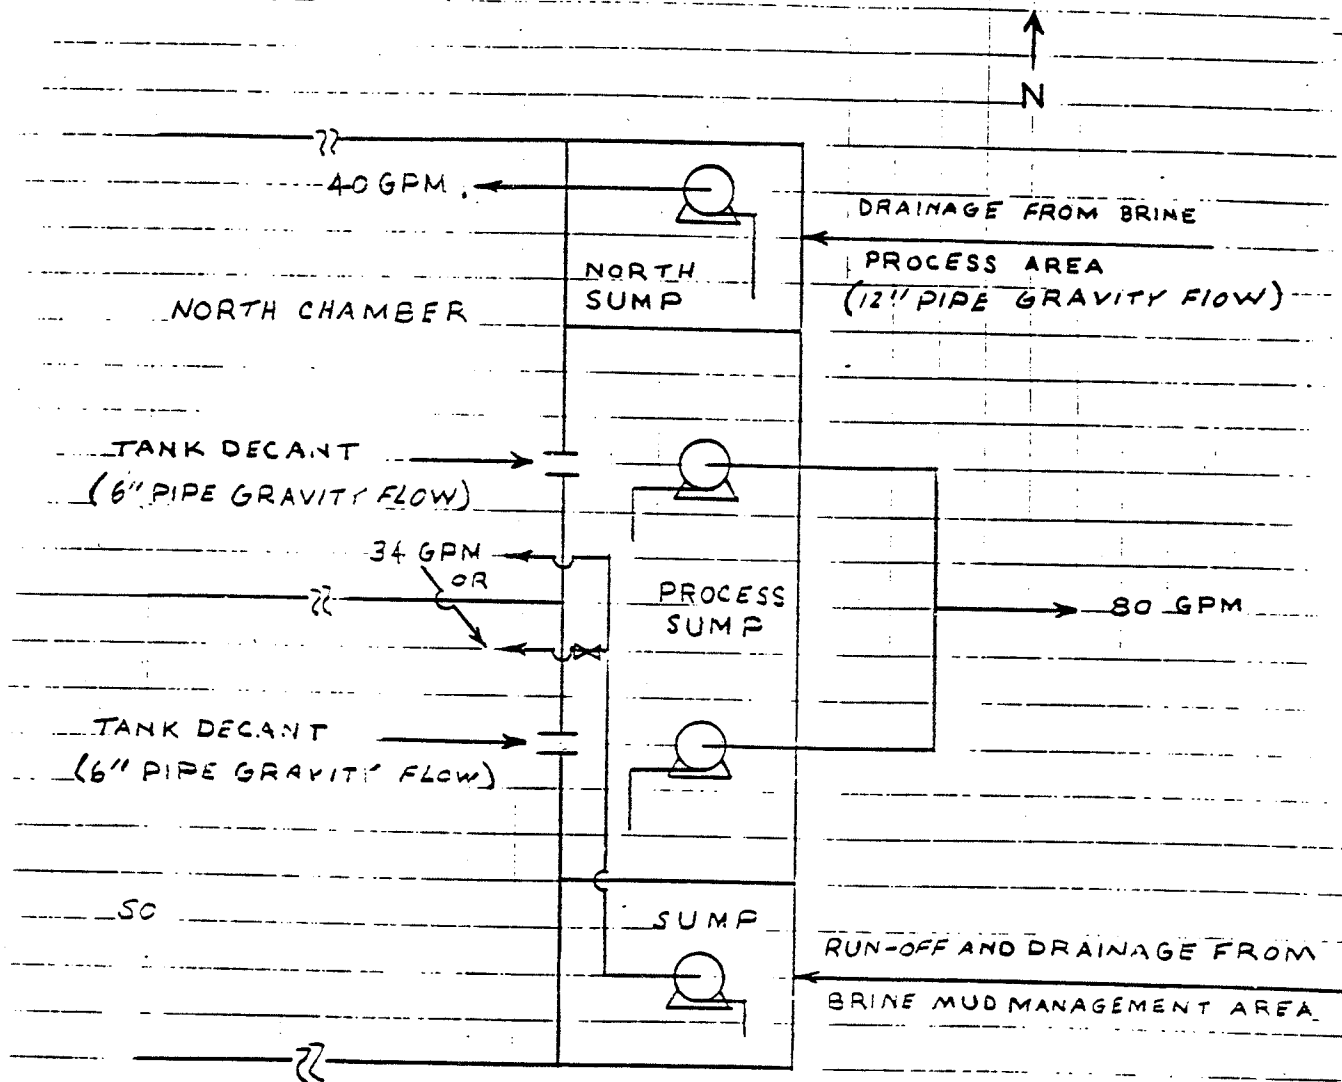 N
40 GPM
DRAINAGE FROM BRINE
PROCESS AREA
(12" PIPE GRAVITY FLOW)
NORTH
SUMP
NORTH CHAMBER
TANK DECANT
(6" PIPE GRAVITY FLOW)
34 GPM
OR
PROCESS
SUMP
80 GPM
TANK DECANT
(6" PIPE GRAVITY FLOW)
SO
SUMP
RUN-OFF AND DRAINAGE FROM
BRINE MUD MANAGEMENT AREA